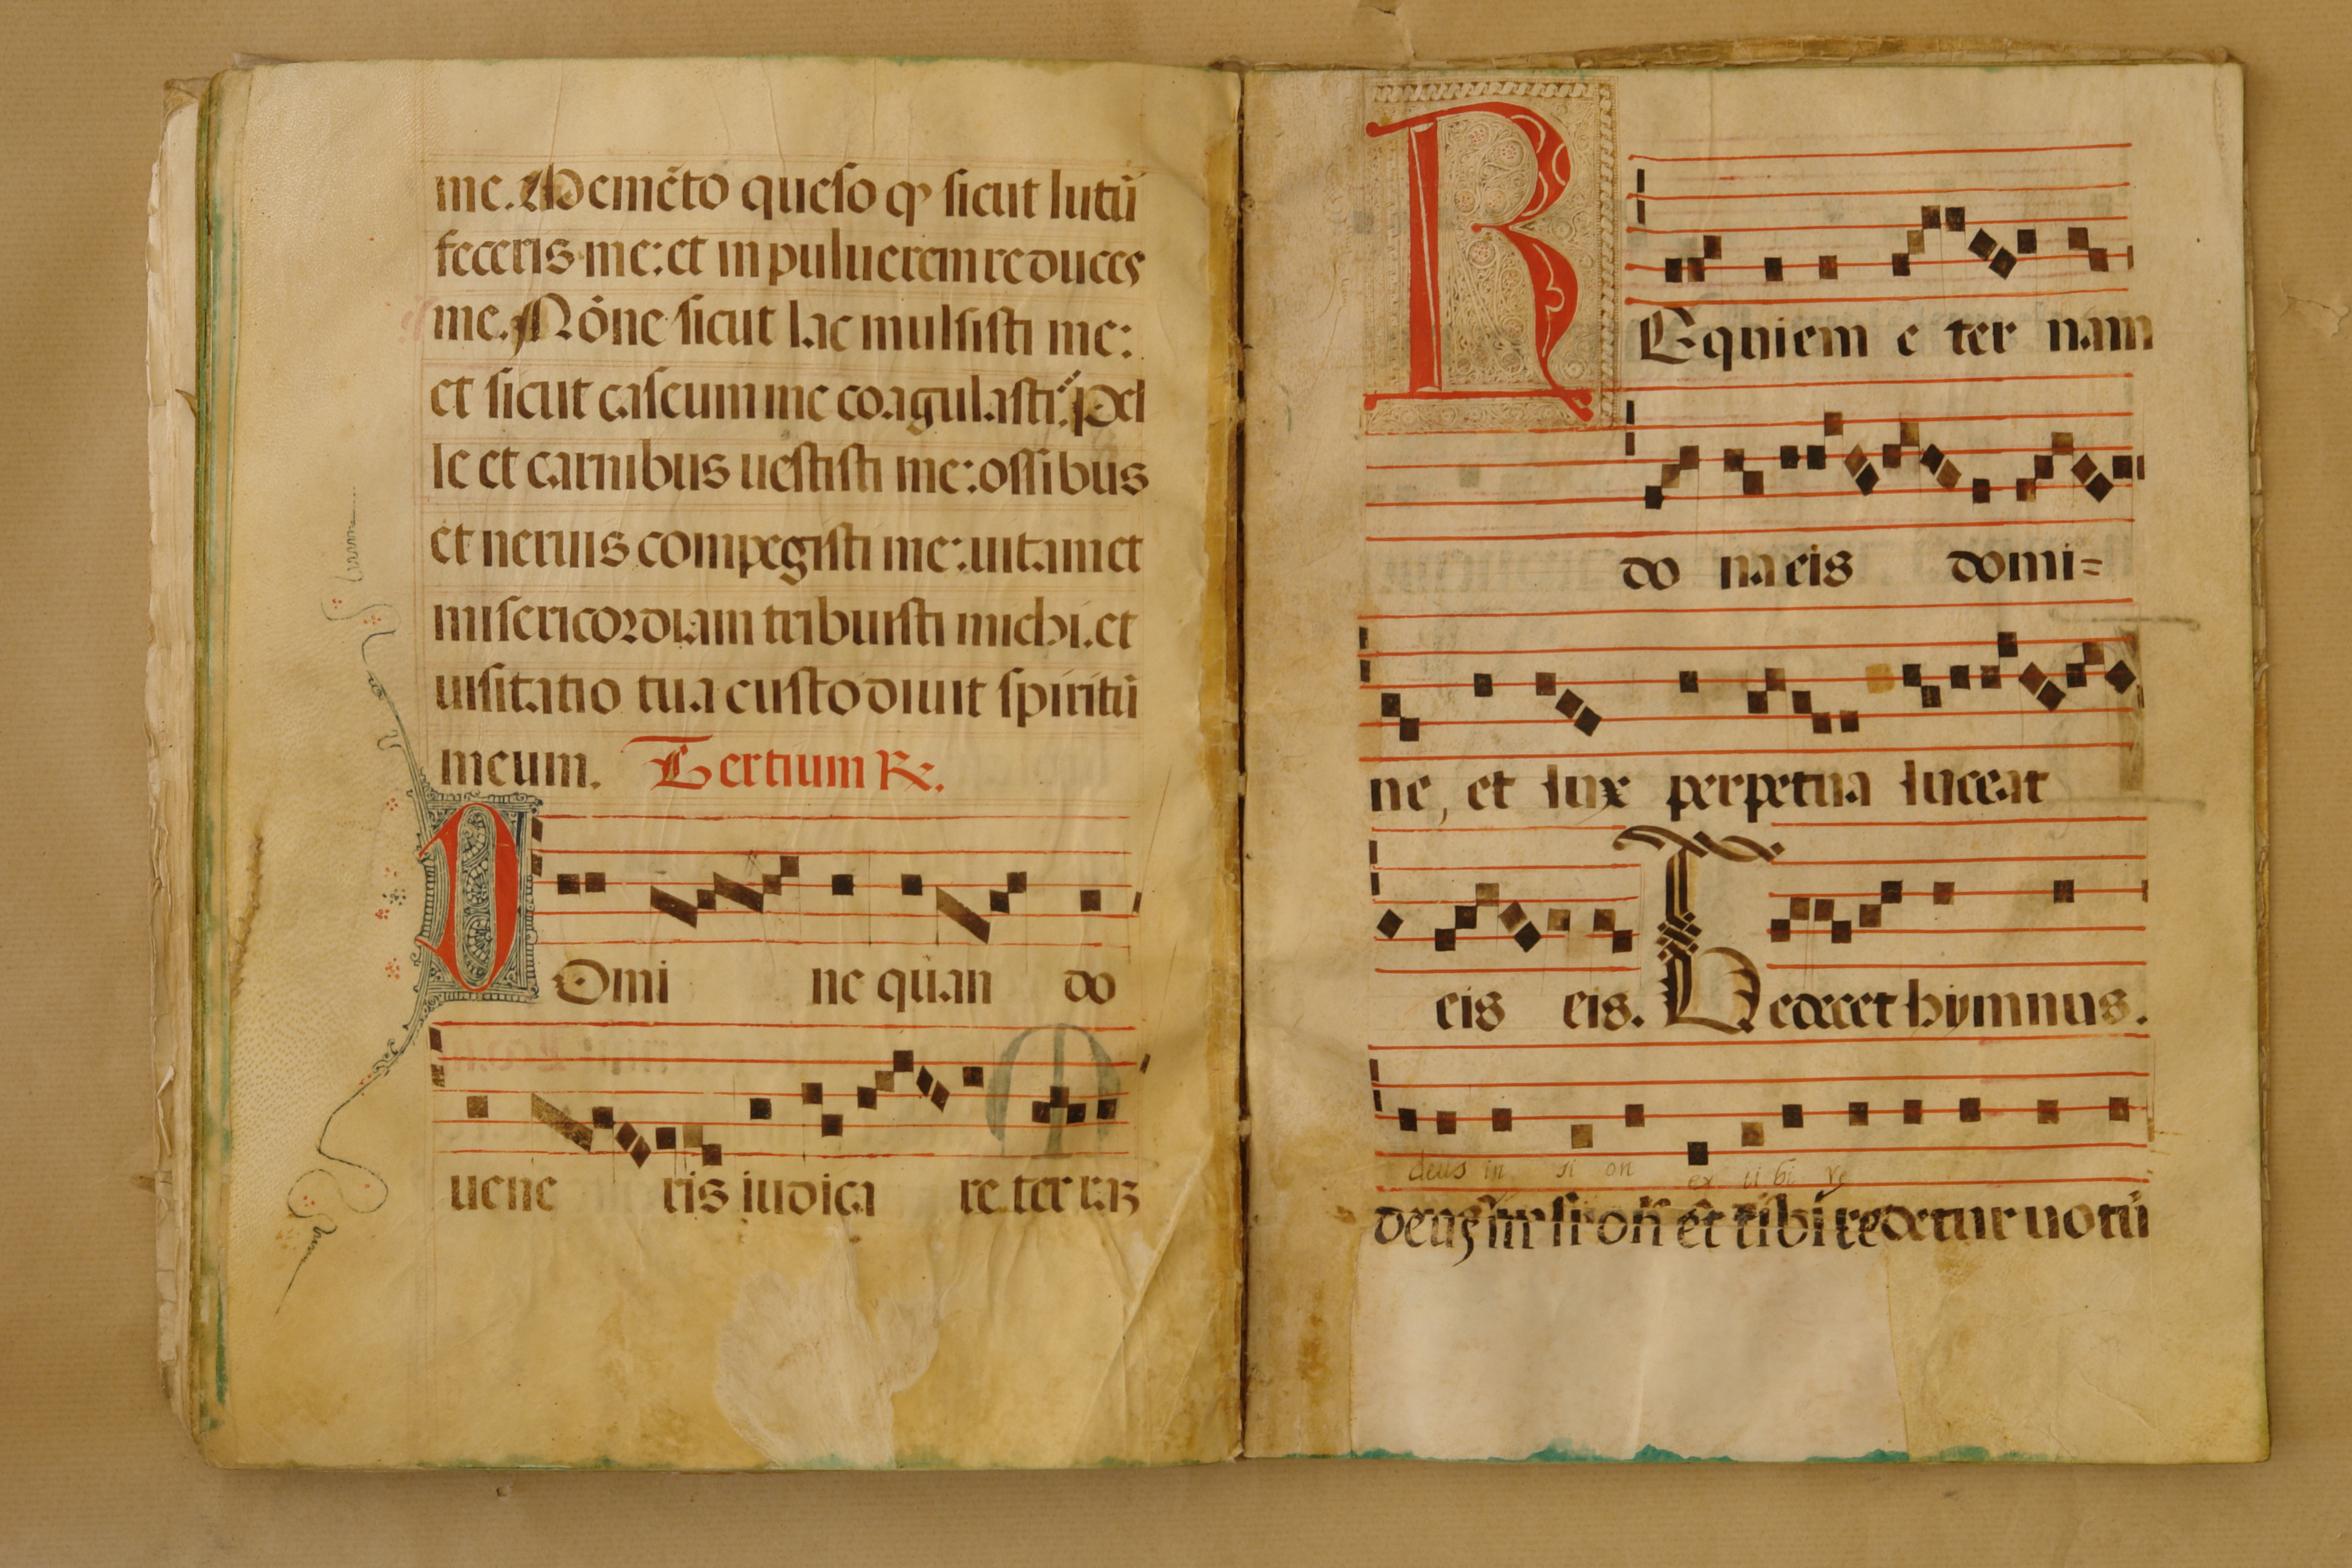 me. Memēto queso ꝙ sicut lutū
feceris me: et in puluerem reduces
me. Nōne sicut lac mulsisti me:
et sicut caseum me coagulasti? Pel
le et carnibus uestisti me: ossibus
et neruis compegisti me: uitam et
misericordiam tribuisti michi. et
uisitatio tua custodiuit spiritū
meum. Tertium ℟.
DOmi ne quan do
uene ris iudica re terras
REquiem e ter nam
do na eis domi=
ne, et lux perpetua luceat
eis eis. Te decet hymnus.
deus in si on ex ti bi re
deus in sion et tibi redetur uotū